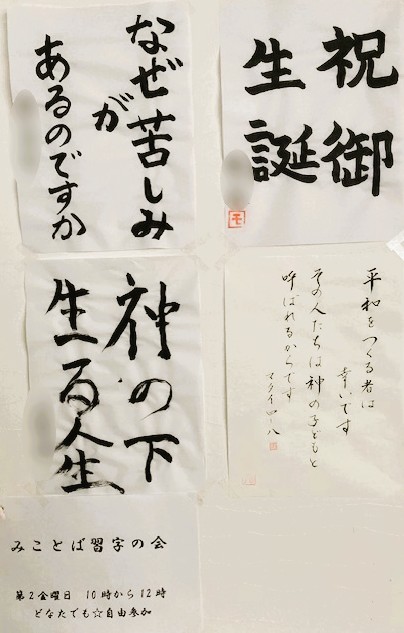 祝御
生誕
モ
なぜ苦しみ
が
あるのですか
平和をつくる者は
幸いです
その人たちは神の子どもと
呼ばれるからです
マタイ
神の下
生 人生
みことば習字の会
第2金曜日 10時から12時
どなたでも☆自由参加